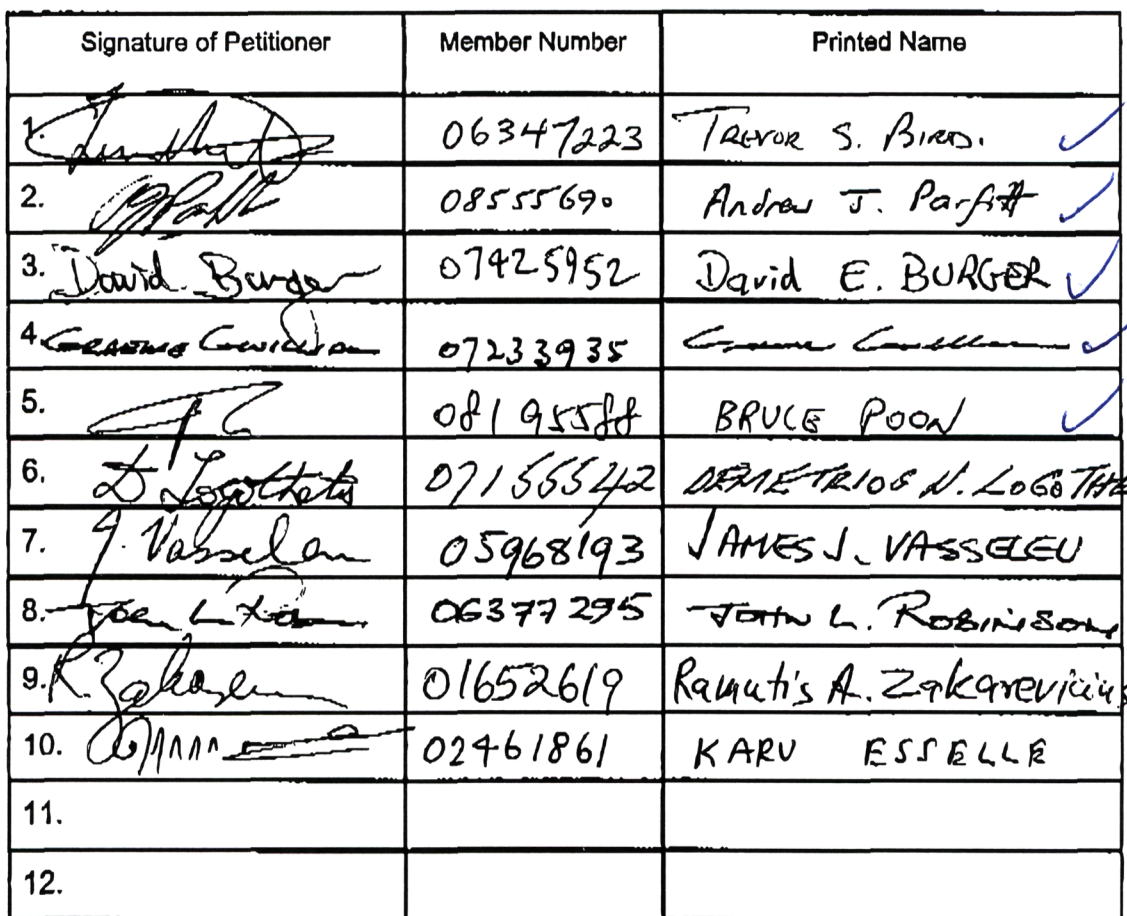 Signature of Petitioner Member Number Printed Name
1. 06347223 TREVOR S. BIRD.
2. 08555690 Andrew J. Parfitt
3. David Burger 07425952 David E. BURGER
4. GRAEME 07233935
5. 08195588 BRUCE POON
6. D Logothetis 07155542 DEMETRIOS N. LOGOTHE
7. J. Vasseleu 05968193 JAMES J. VASSELEU
8. John L 06377295 JOHN L. ROBINSON
9. R. Zakare 01652619 Ramutis A. Zakarevicius
10. 02461861 KARU ESSELLE
11.
12.